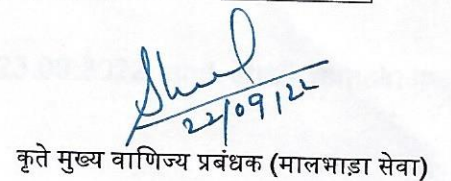 22/09/22
कृते मुख्य वाणिज्य प्रबंधक (मालभाड़ा सेवा)